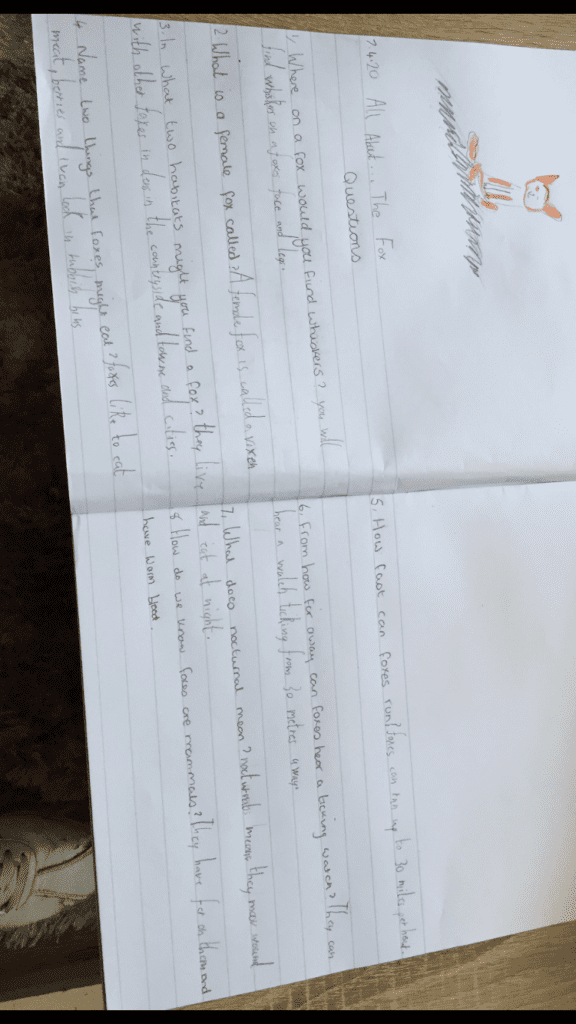 7.4.20 All About... The Fox
Questions
1) Where on a fox would you find whiskers? you will
find whiskers on a foxes face and legs.
2 What is a female fox called? A female fox is called a vixen
3. In what two habitats might you find a fox? they live
with other foxes in dens in the countryside and towns and cities.
4 Name two things that foxes might eat? foxes like to eat
meat, berries and look in rubbish bins
5. How fast can foxes run? foxes can run up to 30 miles per hour.
6. From how far away can foxes hear a ticking watch? They can
hear a watch ticking from 30 metres away.
7. What does nocturnal mean? nocturnal means they move around
and eat at night.
8 How do we know foxes are mammals? They have fur on them and
have worm blood.